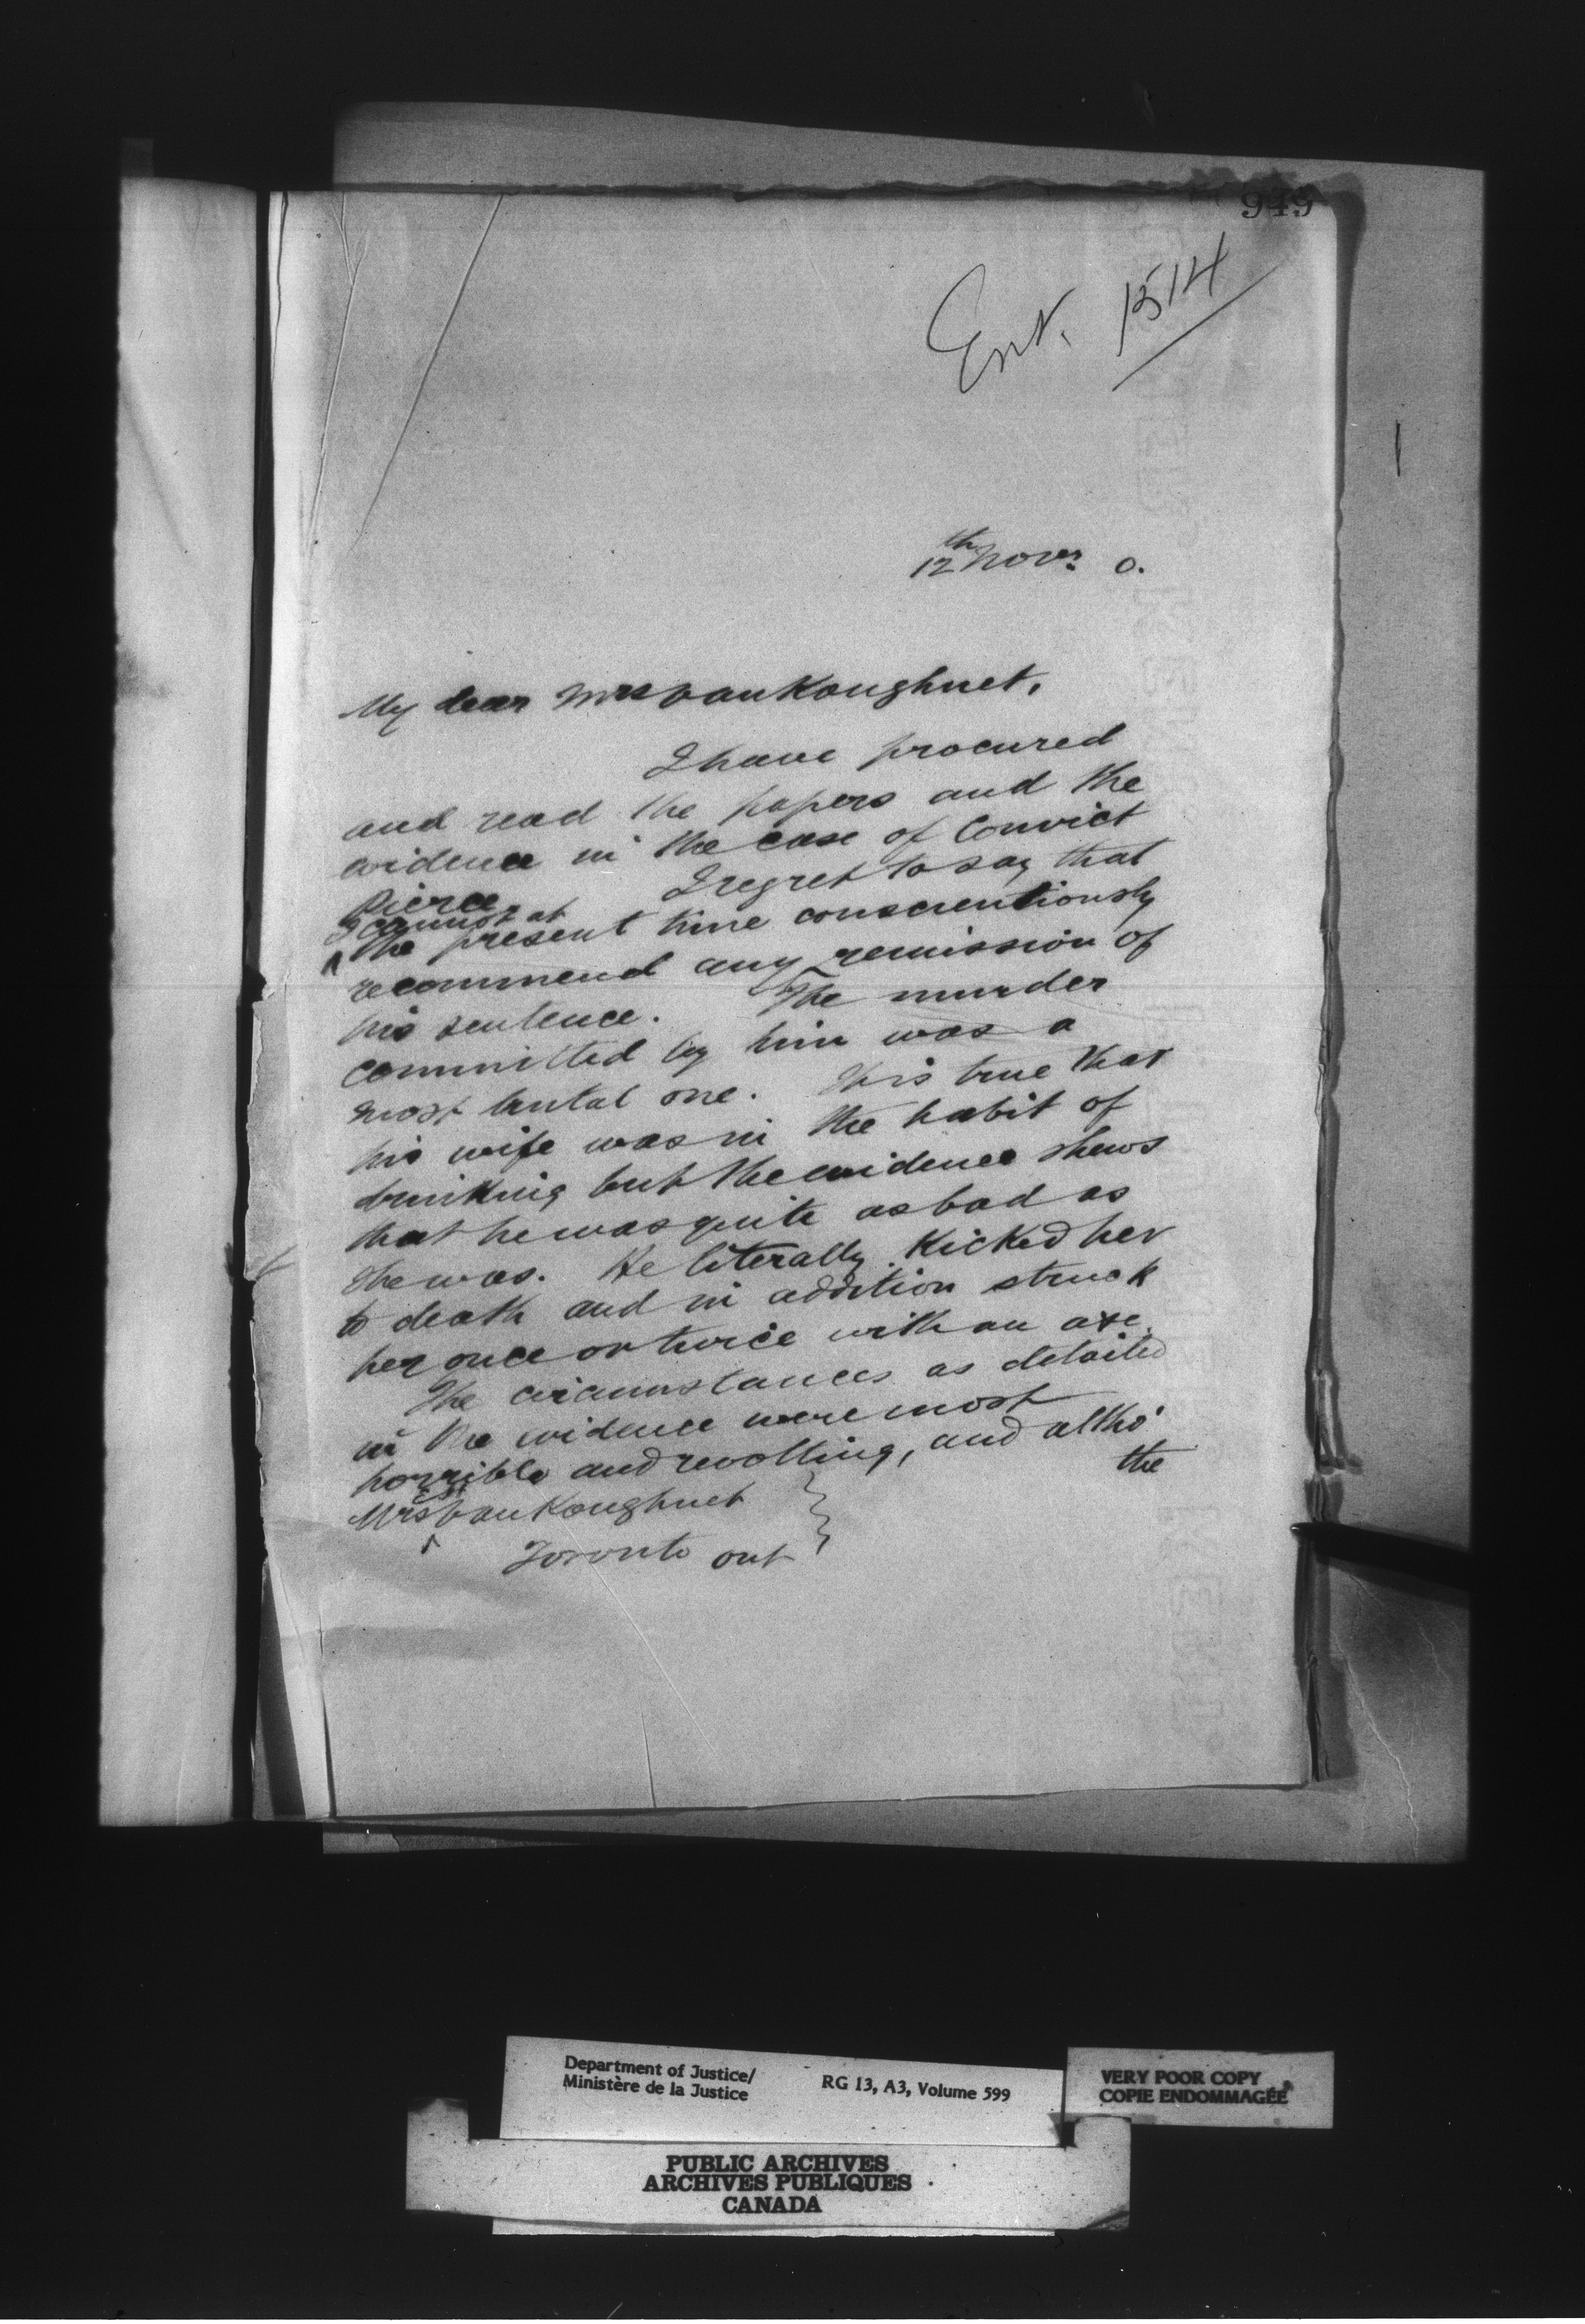 949
Ent. 1514
12th Novr. 0.
My dear Mrs VanKoughnet,
I have procured
and read the papers and the
evidence in the case of Convict
Pierce. I regret to say that
I cannot at
^ the present time conscientiously
recommend any remission of
his sentence. The murder
committed by him was a
most brutal one. It is true that
his wife was in the habit of
drinking but the evidence shews
that he was quite as bad as
she was. He literally kicked her
to death and in addition struck
her once or twice with an axe.
The circumstances as detailed
in the evidence were most
horrible and revolting, and altho'
the
Mrs ^ VanKoughnet
Toronto Ont
Department of Justice/
Ministère de la Justice
RG 13, A3, Volume 599
VERY POOR COPY
COPIE ENDOMMAGÉE
PUBLIC ARCHIVES
ARCHIVES PUBLIQUES
CANADA